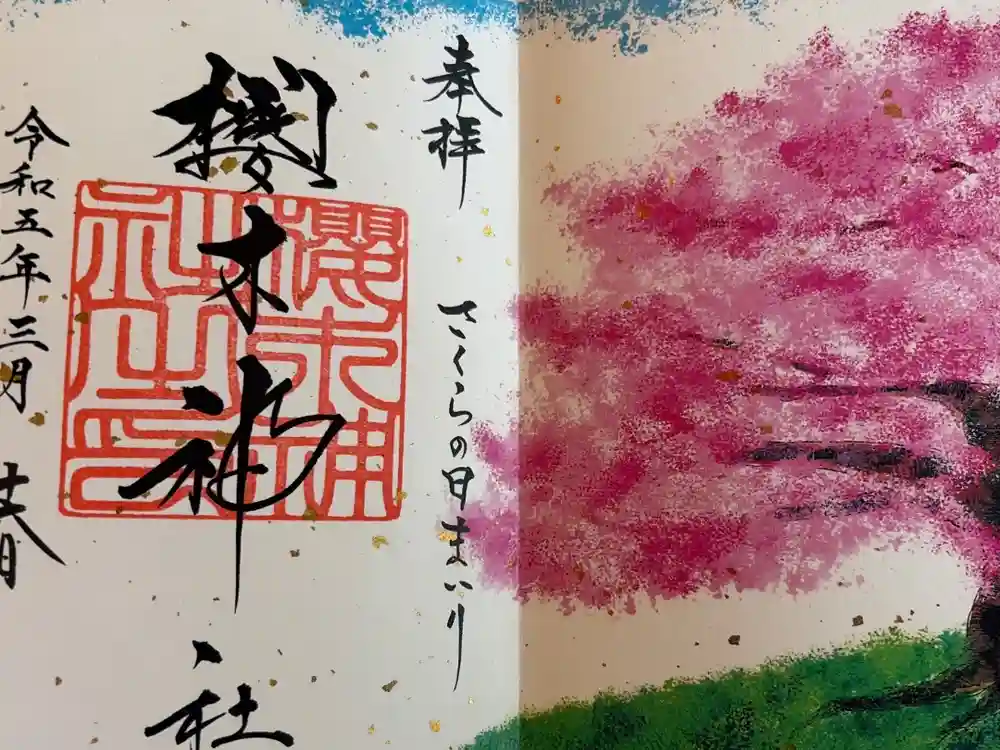 奉拝 さくらの日まいり
櫻木神社
櫻木神
社之印
令和五年三月廿八日